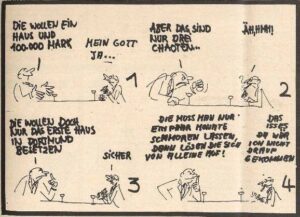 DIE WOLLEN EIN
HAUS UND
100.000 MARK
MEIN GOTT
JA...
1
ABER DAS SIND
NUR DREI
CHAOTEN...
ÄHHM!
2
DIE WOLLEN DOCH
NUR DAS ERSTE HAUS
IN DORTMUND
BESETZEN
SICHER
3
DIE MUSS MAN NUR
EIN PAAR MONATE
SCHMOREN LASSEN,
DANN LÖSEN DIE SICH
VON ALLEINE AUF!
DAS
ISSES
DA WÄR
ICH NICHT
DRAUF
GEKOMMEN
4